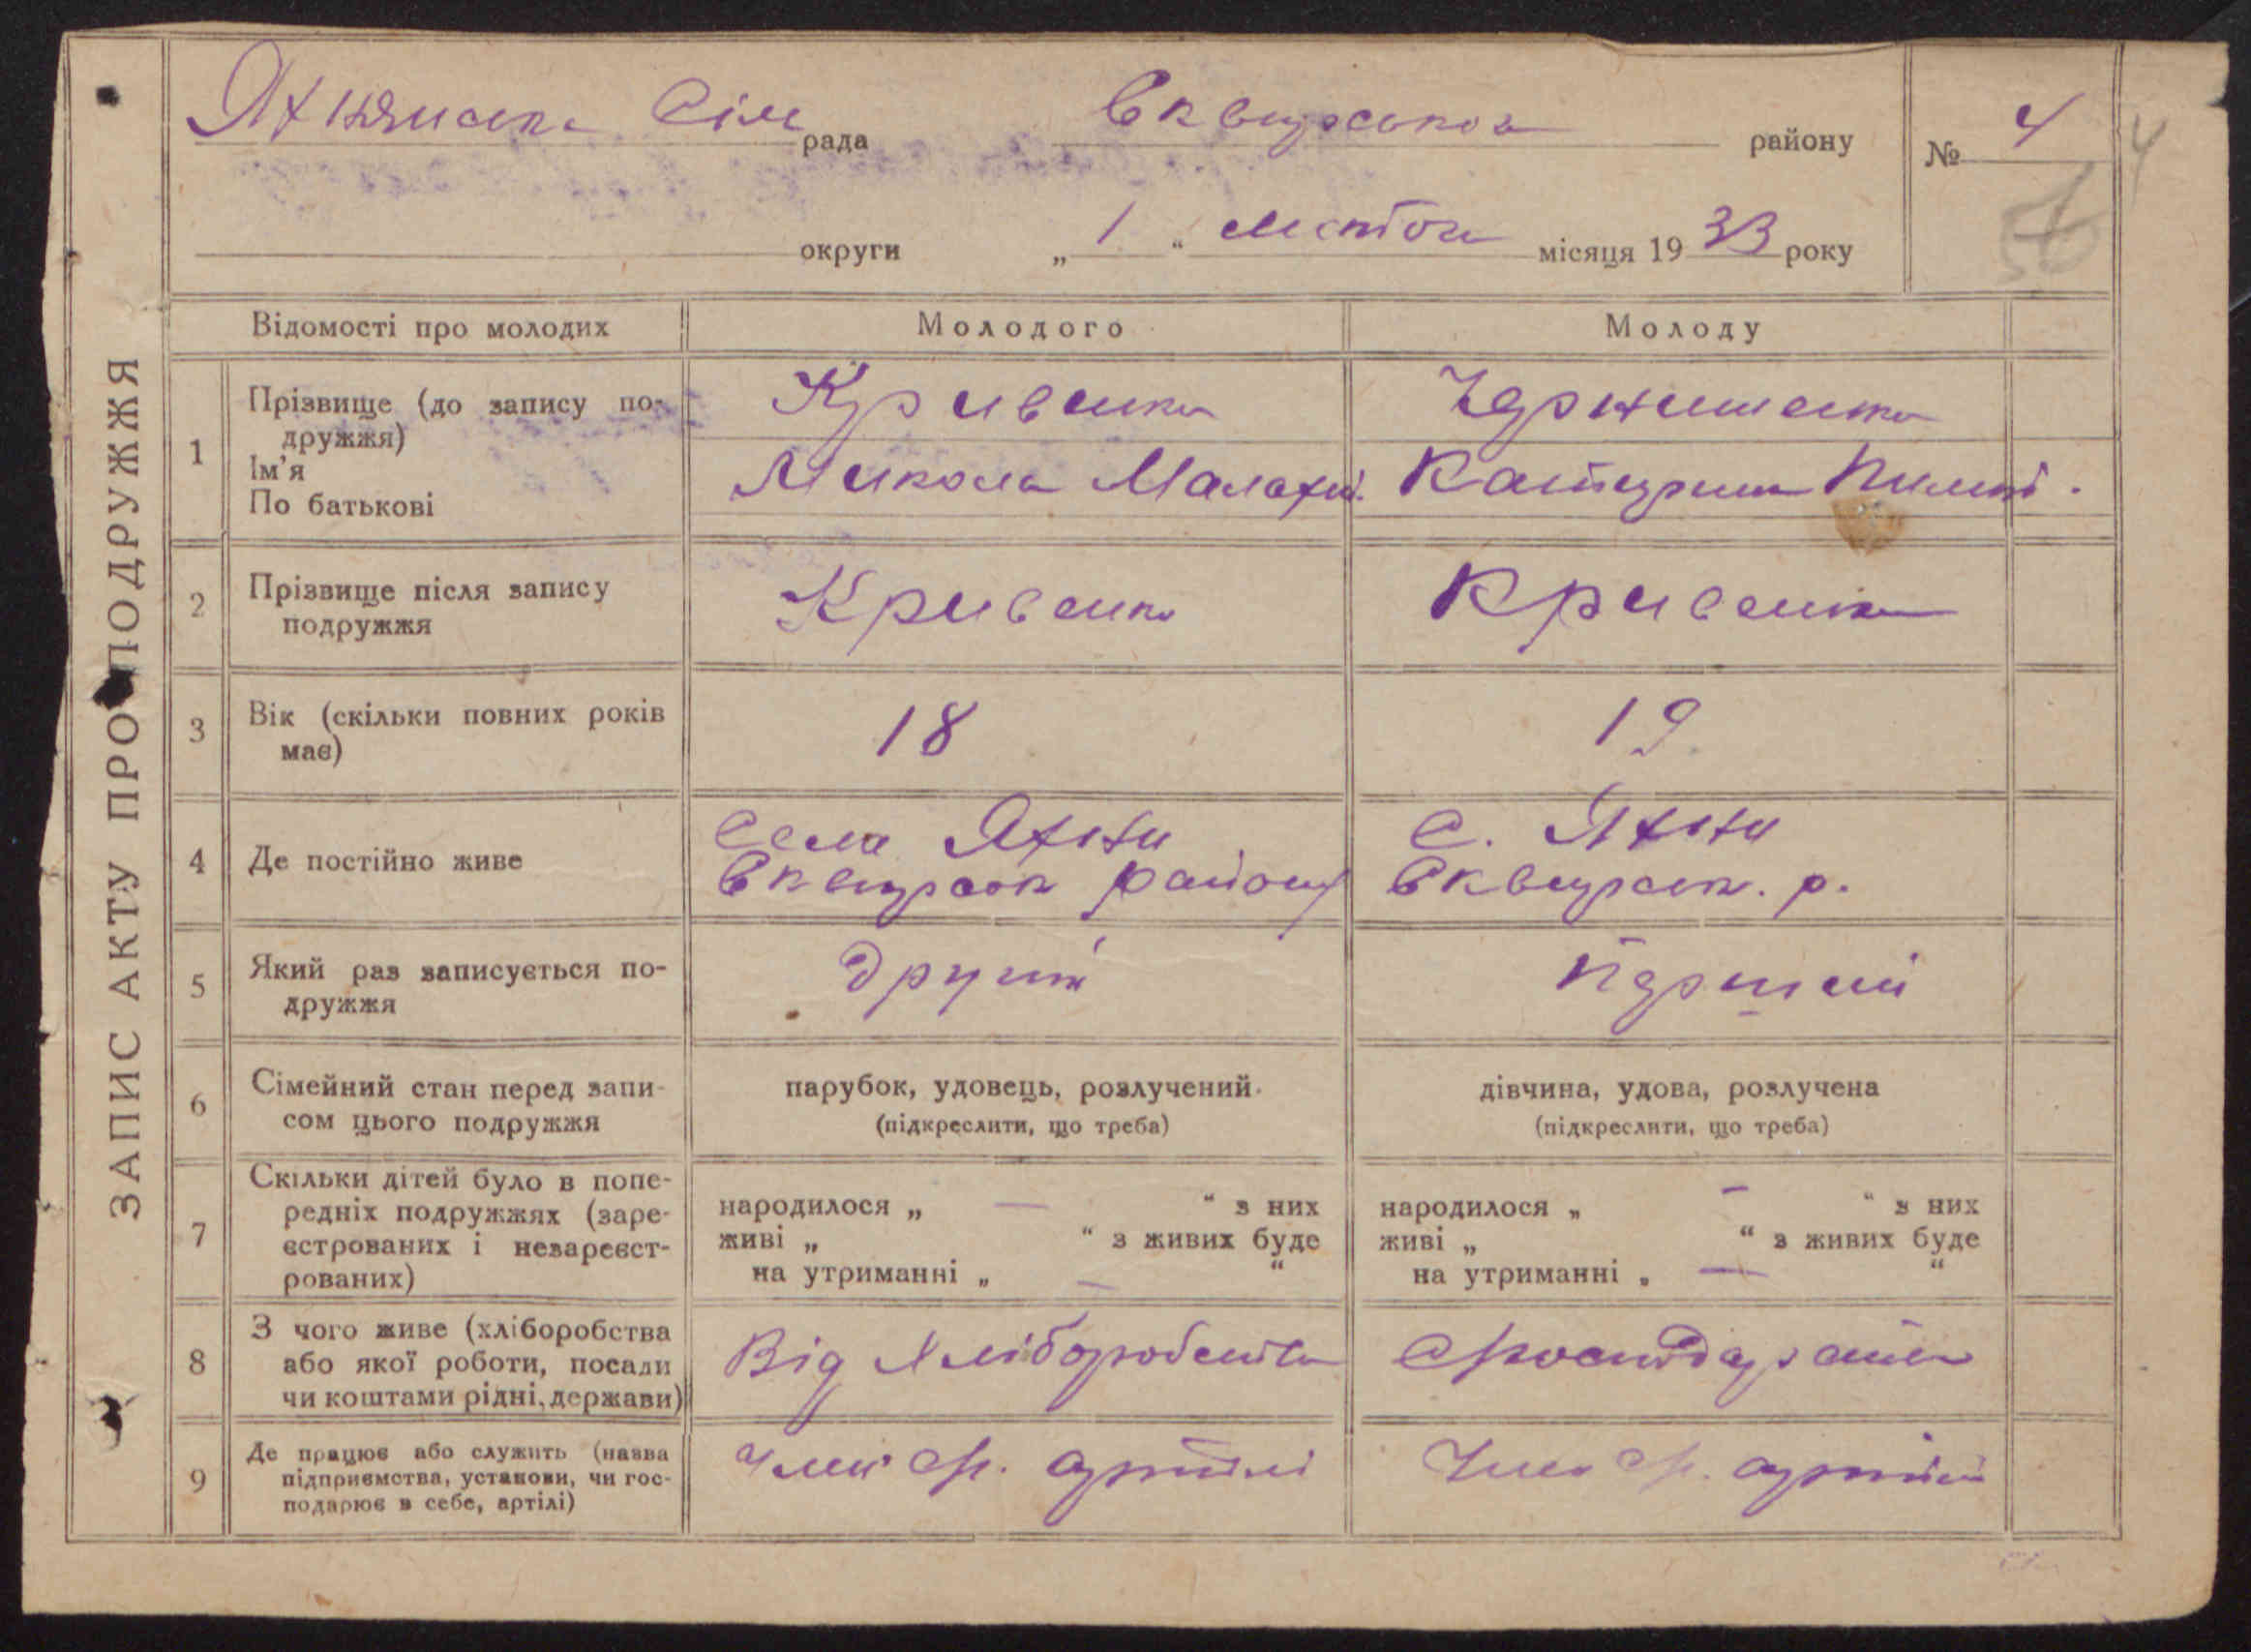 Яхнянська Сіл рада Сквирського району № 4
4
округи „ 1 “ місяця 19 33 року
ЗАПИС АКТУ ПРО ПОДРУЖЖЯ
Відомості про молодих Молодого Молоду
1 Прізвище (до запису по-
дружжя)
Ім’я
По батькові
Кривенко
Микола Малахій.
Чернишенко
Катерина
2 Прізвище після запису
подружжя
Кривенко
Кривенко
3 Вік (скільки повних років
має)
18
19
4 Де постійно живе
Села Яхни
Сквирськ району
С. Яхни
Сквирськ. р.
5 Який раз записується по-
дружжя
другий
перший
6 Сімейний стан перед запи-
сом цього подружжя
парубок, удовець, розлучений
(підкреслити, що треба)
дівчина, удова, розлучена
(підкреслити, що треба)
7 Скільки дітей було в попе-
редніх подружжях (заре-
єстрованих і незареєст-
рованих)
народилося „ — “ з них
живі „ “ з живих буде
на утриманні „ — “
народилося „ — “ з них
живі „ “ з живих буде
на утриманні „ — “
8 З чого живе (хліборобства
або якої роботи, посади
чи коштами рідні, держави)
Від Хліборобства
9 Де працює або служить (назва
підприємства, установи, чи гос-
подарює в себе, артілі)
Член с/г. артілі
Член с/г. артілі